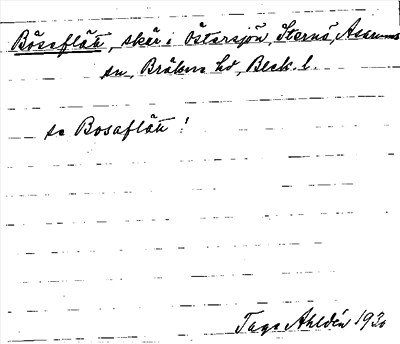 Bösaflätt, skär i Östersjön, Sternö, Asarums
sn, Bräkne hd, Blek. l.
se Bosaflätt!
Tage Ahldén 1930